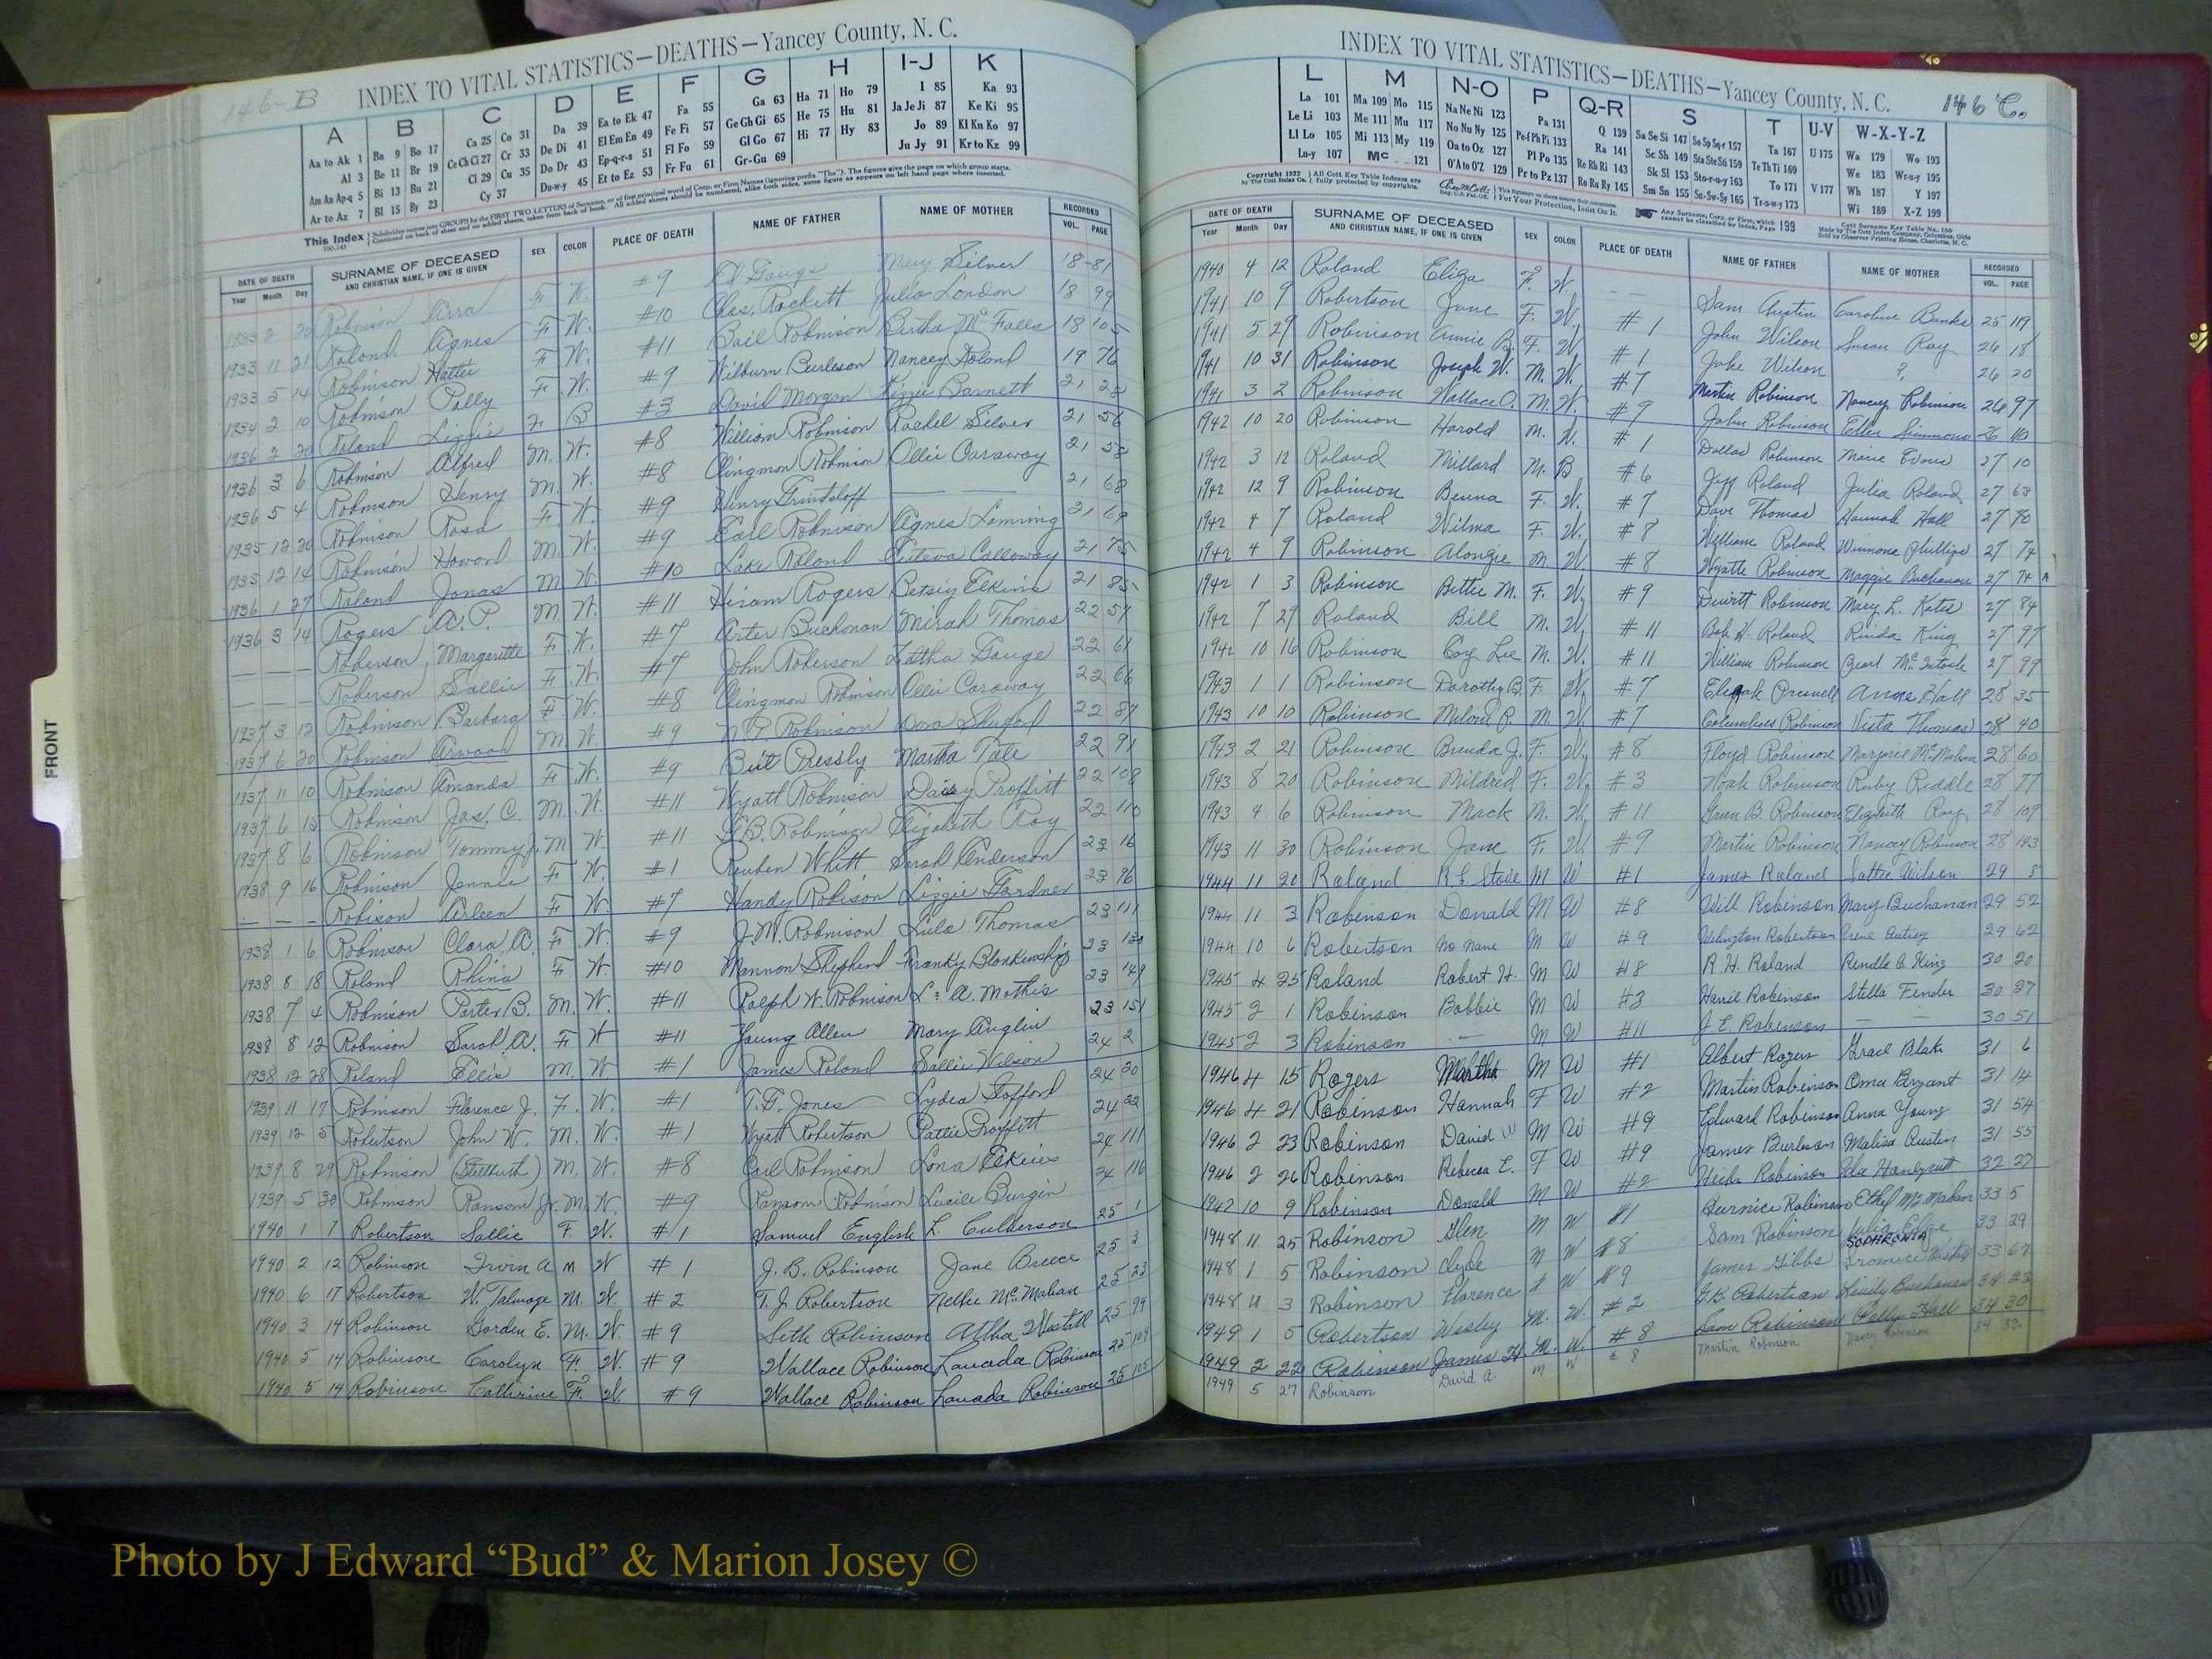 146-B
INDEX TO VITAL STATISTICS—DEATHS—Yancey County, N. C.
A B C D E F G H I-J K
Aa to Ak 1 Ba 9 Bo 17 Ca 25 Co 31 Da 39 Ea to Ek 47 Fa 55 Ga 63 Ha 71 Ho 79 I 85 Ka 93
Al 3 Be 11 Br 19 Ce Ch Ci 27 Cr 33 De Di 41 El Em En 49 Fe Fi 57 Ge Gh Gi 65 He 75 Hu 81 Ja Je Ji 87 Ke Ki 95
Am An Ap-q 5 Bi 13 Bu 21 Cl 29 Cu 35 Do Dr 43 Ep-q-r-s 51 Fl Fo 59 Gl Go 67 Hi 77 Hy 83 Jo 89 Kl Kn Ko 97
Ar to Az 7 Bl 15 By 23 Cy 37 Du-w-y 45 Et to Ez 53 Fr Fu 61 Gr-Gu 69 Ju Jy 91 Kr to Kz 99
This Index
DATE OF DEATH SURNAME OF DECEASED SEX COLOR PLACE OF DEATH NAME OF FATHER NAME OF MOTHER RECORDED
Year Month Day AND CHRISTIAN NAME, IF ONE IS GIVEN VOL. PAGE
1933 2 20 Robinson Arra F. W. #9 Ed Gouge Mary Silver 18-81
1933 11 21 Roland Agnes F W. #10 Chas. Rockett Julia London 18 99
1933 5 14 Robinson Hattie F W. #11 Robinson Bertha McFalls 18 105
1934 2 10 Robinson Polly F W. #9 Wilburn Burleson Nancey Roland 19 76
1936 2 20 Roland Lizzie F B #3 David Morgan Lizzie Barnett 21 28
1936 3 6 Robinson Alfred M. W. #8 William Robinson Rachel Silver 21 56
1936 5 4 Robinson Henry M. W. #8 Clingmon Robinson Ollie Caraway 21 58
1935 12 20 Robinson Rosa F W #9 Henry Grindstoff — — 21 68
1935 12 14 Robinson Howard M. W. #9 Earl Robinson Agnes 21 69
1936 1 27 Roland Jonas M W #10 Lake Roland Calloway 21 75
1936 3 14 Rogers A. P. M. W. #11 Hiram Rogers Betsey Elkins 21 85
— — — Roberson Margarette F. W. #7 Arter Buchonon Mirah Thomas 22 57
— — — Roberson Sallie F. W. #7 John Roberson Gouge 22 61
1937 3 12 Robinson Barbara F. W. #8 Clingmon Robinson Ollie Caraway 22 66
1937 6 20 Robinson Arwood M W #9 Robinson Dora 22 87
1937 11 10 Robinson Amanda F. W. #9 Pressly Martha Tate 22 91
1937 6 15 Robinson Jas. C. M. W. #11 Wyatt Robinson Daisy Proffitt 22 108
1937 8 6 Robinson Tommy J. M W. #11 Robinson Elizabeth Ray 22 110
1938 9 16 Robinson Jennie F W. #1 Reuben Whitt Sarah Anderson 23 16
— — — Robison Arleen F W. #7 Handy Robison Lizzie Gardner 23 96
1938 1 6 Robinson Clara A. F W. #9 J. W. Robinson Lula Thomas 23 111
1938 8 18 Roland Rhina F W. #10 Mannon Shepherd Franky Blankenship 23 130
1938 7 4 Robinson Porter B. M. W. #11 Ralph W. Robinson L. A. Mathis 23 149
1938 8 12 Robinson Sarah A. F W #11 Young Allen Mary Anglin 23 151
1938 12 28 Roland Ellis M. W #1 James Roland Sallie Wilson 24 2
1939 11 17 Robinson Florence J. F. W. #1 T. G. Jones Lydia 24 20
1939 12 5 Robertson John W. M. W. #1 Wyatt Robertson Pattie Proffitt 24 22
1939 8 29 Robinson (Stillbirth) M. W. #8 Carl Robinson Lona Elkins 24 111
1939 5 30 Robinson Ransom Jr. M. W. #9 Ransom Robinson Lucile Burgin 24 116
1940 1 7 Robertson Sallie F. W. #1 Samuel English L. Culberson 25 1
1940 2 12 Robinson Irvin A. M W #1 J. B. Robinson Jane Bruce 25 3
1940 6 17 Robertson W. Talmage M. W. #2 T. J. Robertson Nellie McMahan 25 23
1940 3 14 Robinson Gorden E. M. W. #9 Seth Robinson Atha Westall 25 94
1940 5 14 Robinson Carolyn F. W. #9 Wallace Robinson Lauada Robinson 25 104
1940 5 14 Robinson Catherine F. W. #9 Wallace Robinson Lauada Robinson 25 105
FRONT
INDEX TO VITAL STATISTICS—DEATHS—Yancey County, N. C. 146 C.
L M N-O P Q-R S T U-V W-X-Y-Z
La 101 Ma 109 Mo 115 Na Ne Ni 123 Pa 131 Q 139 Sa Se Si 147 So Sp Sq-r 157 Ta 167 U 175 Wa 179 Wo 193
Le Li 103 Me 111 Mu 117 No Nu Ny 125 Pe-f Ph Pi 133 Ra 141 Sc Sh 149 Sta Ste Sti 159 Te Th Ti 169 We 183 Wr-u-y 195
Ll Lo 105 Mi 113 My 119 Oa to Oz 127 Pl Po 135 Re Rh Ri 143 Sk Sl 153 Sto-r-u-y 163 To 171 V 177 Wh 187 Y 197
Lu-y 107 Mc 121 O'A to O'Z 129 Pr to Pz 137 Ro Ru Ry 145 Sm Sn 155 Su-Sw-Sy 165 Tr-u-w-y 173 Wi 189 X-Z 199
DATE OF DEATH SURNAME OF DECEASED SEX COLOR PLACE OF DEATH NAME OF FATHER NAME OF MOTHER RECORDED
Year Month Day AND CHRISTIAN NAME, IF ONE IS GIVEN VOL. PAGE
1940 4 12 Roland Eliza F. W. — — Sam Austin Caroline Banks 25 117
1941 10 9 Robertson Jane F. W. #1 John Wilson Susan Ray 26 18
1941 5 29 Robinson Annie B. F. W #1 Jake Wilson ? 26 20
1941 10 31 Robinson Joseph W. M. W. #7 Martin Robinson Nancy Robinson 26 97
1941 3 2 Robinson Wallace O. M. W. #9 John Robinson Ellen Simmons 26 110
1942 10 20 Robinson Harold M. W. #1 Dallas Robinson Marie Evans 27 10
1942 3 12 Roland Millard M. B #6 Jeff Roland Julia Roland 27 63
1942 12 9 Robinson Benna F. W. #7 Dave Thomas Hannah Hall 27 70
1942 4 7 Roland Wilma F. W. #8 William Roland Winnona Phillips 27 74
1942 4 9 Robinson Alongie M. W. #8 Wyatte Robinson Maggie Buchanan 27 74 A
1942 1 3 Robinson Bettie M. F. W. #9 Dewitt Robinson Mary L. 27 84
1942 7 29 Roland Bill M. W. #11 Bob H. Roland Rinda King 27 97
1942 10 16 Robinson Coy Lee M. W. #11 William Robinson Pearl McIntosh 27 99
1943 1 1 Robinson Dorothy B. F. W. #7 Elijah Presnell Anne Hall 28 35
1943 10 10 Robinson R. M. W. #7 Columbus Robinson Vista Thomas 28 40
1943 2 21 Robinson Brenda J. F. W. #8 Floyd Robinson Marjorie McMahan 28 60
1943 8 20 Robinson Mildred F. W. #3 Noah Robinson Ruby Riddle 28 77
1943 4 6 Robinson Mack M. W. #11 Green B. Robinson Elizabeth Ray 28 109
1943 11 30 Robinson Jane F. W #9 Martin Robinson Nancy Robinson 28 143
1944 11 20 Roland R L Stove M W #1 James Roland Sattie Wilson 29 8
1944 11 3 Robinson Donald M W #8 Will Robinson Mary Buchanan 29 52
1944 10 6 Robertson No Name M W #9 Welington Robertson Irene Autrey 29 62
1945 4 25 Roland Robert H. M W #8 R. H. Roland Rendla C. King 30 20
1945 2 1 Robinson Bobbie M W #3 Harril Robinson Stella Fender 30 27
1945 2 3 Robinson — M W #11 J. E. Robinson — — 30 51
1946 4 15 Rogers Martha M W #1 Albert Rogers Grace Blake 31 6
1946 4 21 Robinson Hannah F W #2 Martin Robinson Oma Bryant 31 14
1946 2 23 Robinson David W M W #9 Edward Robinson Anna Young 31 54
1946 2 26 Robinson Rebecca L. F W #9 James Burleson Malisa Austin 31 55
1947 10 9 Robinson Donald M W #2 Robinson Ida Honeycutt 32 27
1948 11 25 Robinson Glen M W #1 Burnice Robinson Ethel McMahan 33 5
1948 1 5 Robinson Clyde M W #8 Sam Robinson Julia Edge 33 29
1948 4 3 Robinson Florence F W #9 James Gibbs SOPHRONIA 33 67
1949 1 5 Robertson Wesley M. W. #2 G. K. Robertson Buchanan 34 23
1949 2 22 Robinson James H M. W. #8 Sam Robinson Polly Hall 34 30
1949 5 27 Robinson David A. M W #8 Martin Robinson Nancy Robinson 34 32
Photo by J Edward “Bud” & Marion Josey ©